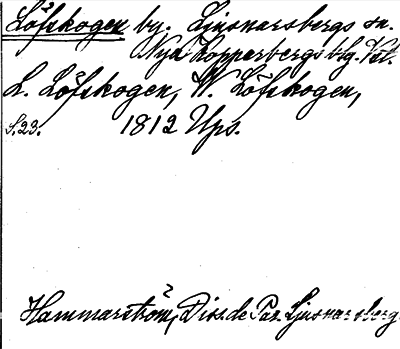 Löfskogen by. Ljusnarsbergs sn.
Nya Kopparbergs blg. Vstl.
L. Löfskogen, N. Löfskogen,
S. 23. 1812 Ups.
Hammarström, Diss. de Par. Ljusnarsberg